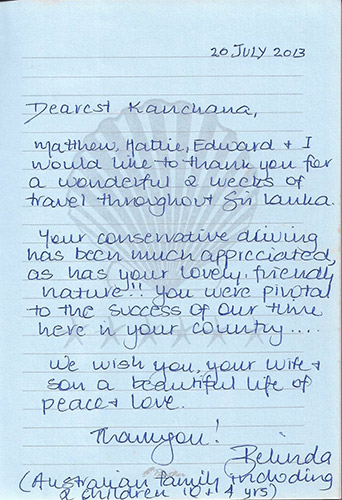 20 JULY 2013
Dearest Kanchana,
Matthew, Hattie, Edward + I
would like to thank you for
a wonderful 2 weeks of
travel throughout Sri Lanka.
Your conservative driving
has been much appricciated,
as has your lovely, friendly
nature!! You were pivotal
to the success of our time
here in your country....
We wish you, your wife +
son a beautiful life of
peace + love.
Thankyou!
Belinda
(Australian family including
2 children 10 + 4 yrs)